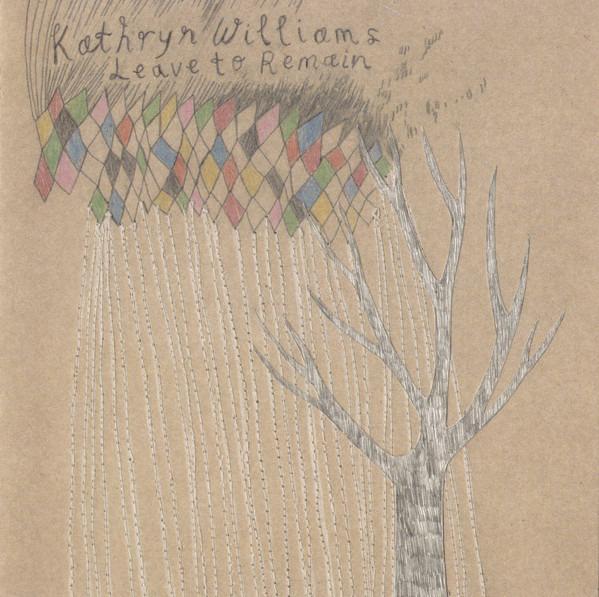 Kathryn Williams
Leave to Remain